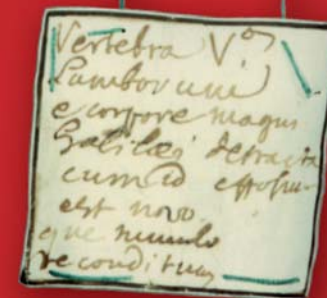 Vertebra V.ª
Lumborum
e corpore magni
Galilæi detracta
cum id effossum
est novo
que tumulo
reconditum